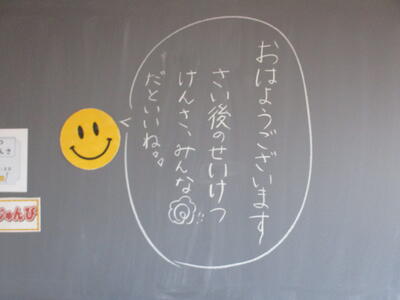 おはようございます
さい後のせいけつ
けんさ、みんな
だといいね。。
じゅんび